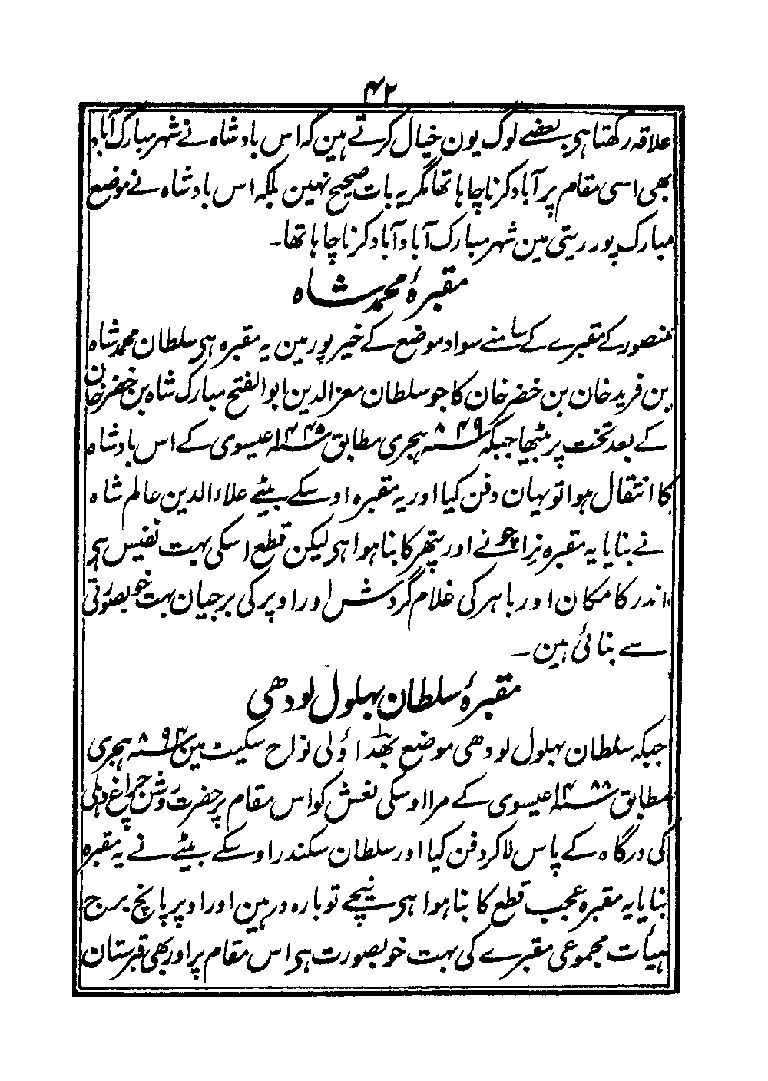 ۴۲
علاقہ رکھتا ہی بعضے لوگ یون خیال کرتے ہین کہ اس بادشاہ نے شہر مبارک آباد
بھی اسی مقام پر آباد کرنا چاہا تھا مگر یہ بات صحیح نہین بلکہ اس بادشاہ نے موضع
مبارک پور ریتی مین شہر مبارک آباد آباد کرنا چاہا تھا۔
مقبرۂ محمد شاہ
منصور کے مقبرے کے سامنے سواد موضع کے خیرپور مین یہ مقبرہ ہی سلطان محمد شاہ
بن فرید خان بن خضر خان کا جو سلطان معز الدین ابو الفتح مبارک شاہ بن خضر خان
کے بعد تخت پر بیٹھا جبکہ ۸۴۹ ہجری مطابق ۱۴۴۵ عیسوی کے اس بادشاہ
کا انتقال ہوا تو یہان دفن کیا اور یہ مقبرہ اوسکے بیٹے علاء الدین عالم شاہ
نے بنایا یہ مقبرہ نرا چونے اور پتھر کا بنا ہوا ہی لیکن قطع اسکی بہت نفیس ہی
اندر کا مکان اور باہر کی غلام گردش اور اوپر کی برجیان بہت خوبصورتی
سے بنائی ہین۔
مقبرۂ سلطان بہلول لودھی
جبکہ سلطان بہلول لودھی موضع بھدا ؤلی نواح سکیٹ مین ۸۹۴ ہجری
مطابق ۱۴۸۸ عیسوی کے مرا اوسکی نعش کو اس مقام پر حضرت روشن چراغ دہلی
کی درگاہ کے پاس لا کر دفن کیا اور سلطان سکندر اوسکے بیٹے نے یہ مقبرہ
بنایا یہ مقبرہ عجب قطع کا بنا ہوا ہی نیچے تو بارہ در ہین اور اوپر پانچ برج
ہیأت مجموعی مقبرے کی بہت خوبصورت ہی اس مقام پر اور بھی قبرستان